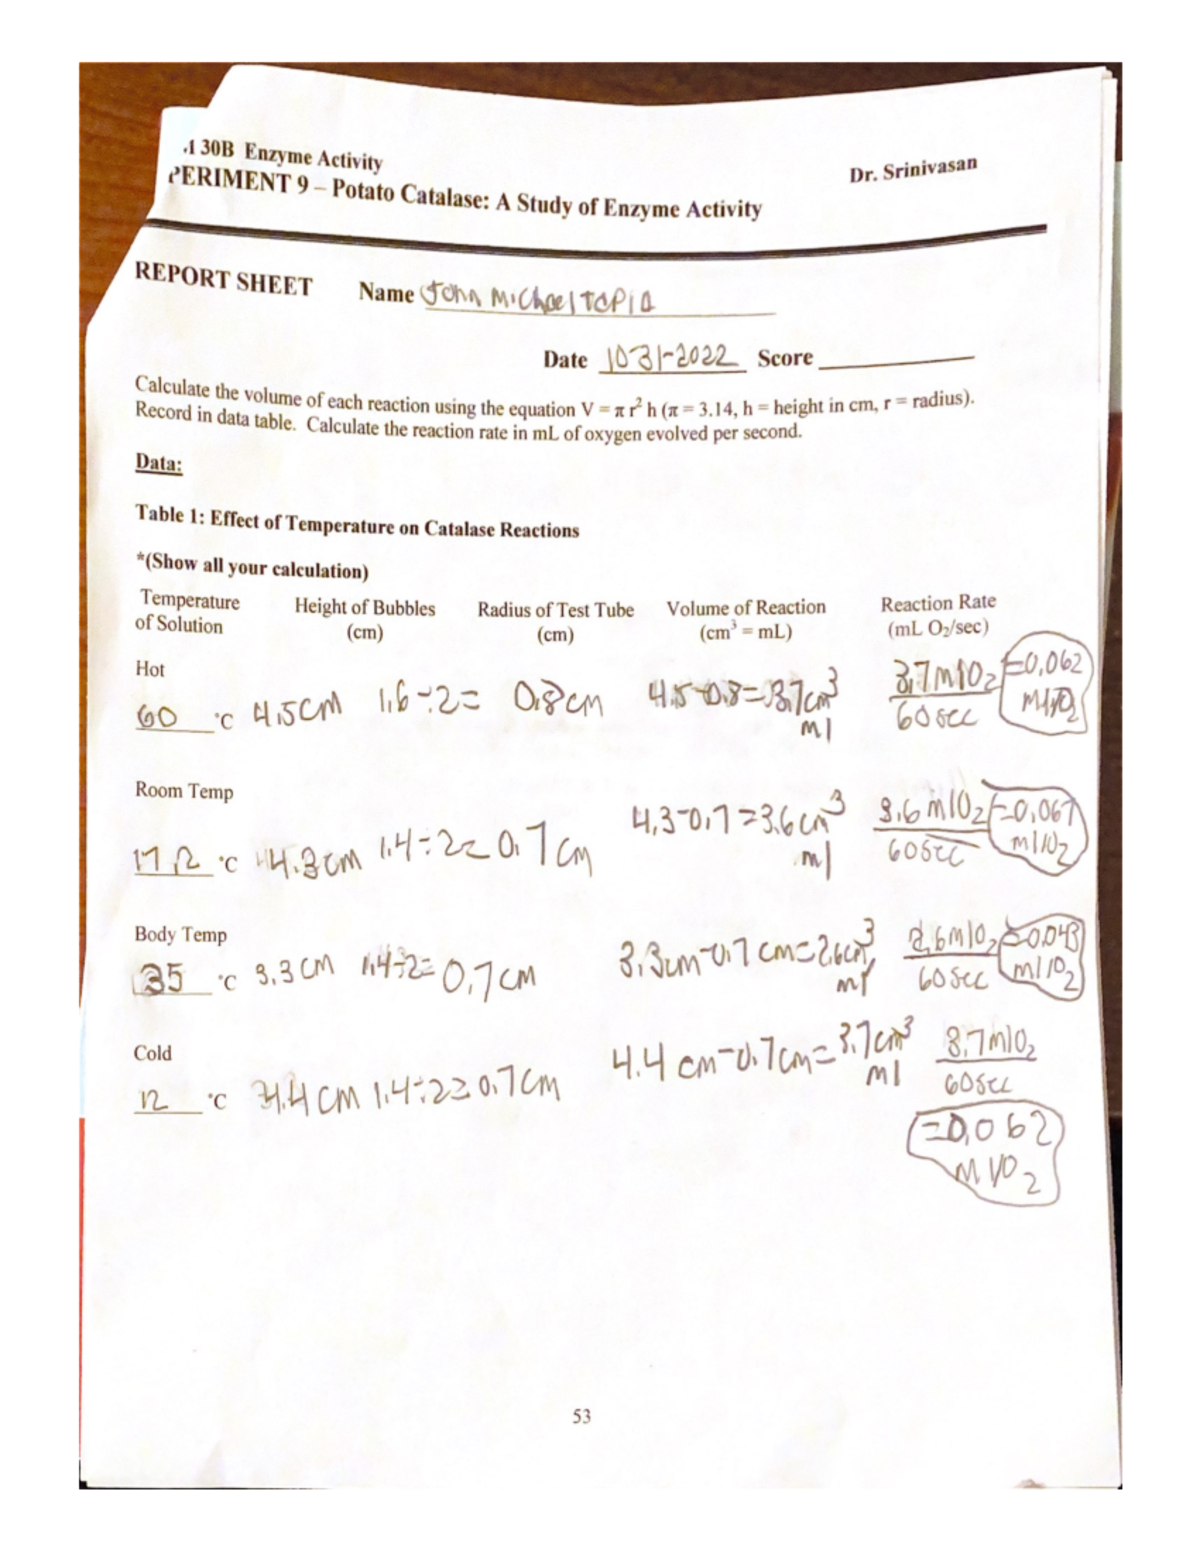 A 30B Enzyme Activity
Dr. Srinivasan
PERIMENT 9 – Potato Catalase: A Study of Enzyme Activity
REPORT SHEET Name John Michael Tapia
Date 10-31-2022 Score
Calculate the volume of each reaction using the equation V = π r² h (π = 3.14, h = height in cm, r = radius).
Record in data table. Calculate the reaction rate in mL of oxygen evolved per second.
Data:
Table 1: Effect of Temperature on Catalase Reactions
*(Show all your calculation)
Temperature Height of Bubbles Radius of Test Tube Volume of Reaction Reaction Rate
of Solution (cm) (cm) (cm³ = mL) (mL O₂/sec)
Hot
60 °C 4.5cm 1.6÷2= 0.8cm 4.5-0.8=3.7cm³ ml 3.7mlO₂ =0.062
60sec mlO₂
Room Temp
17.2 °C 4.3cm 1.4÷2=0.7cm 4.3-0.7=3.6cm³ ml 3.6mlO₂ =0.067
60sec mlO₂
Body Temp
35 °C 3.3cm 1.4÷2= 0.7cm 3.3cm-0.7cm=2.6cm³ ml 2.6mlO₂ =0.043
60sec mlO₂
Cold
12 °C 4.4cm 1.4÷2=0.7cm 4.4cm-0.7cm=3.7cm³ ml 3.7mlO₂
60sec
=0.062
mlO₂
53